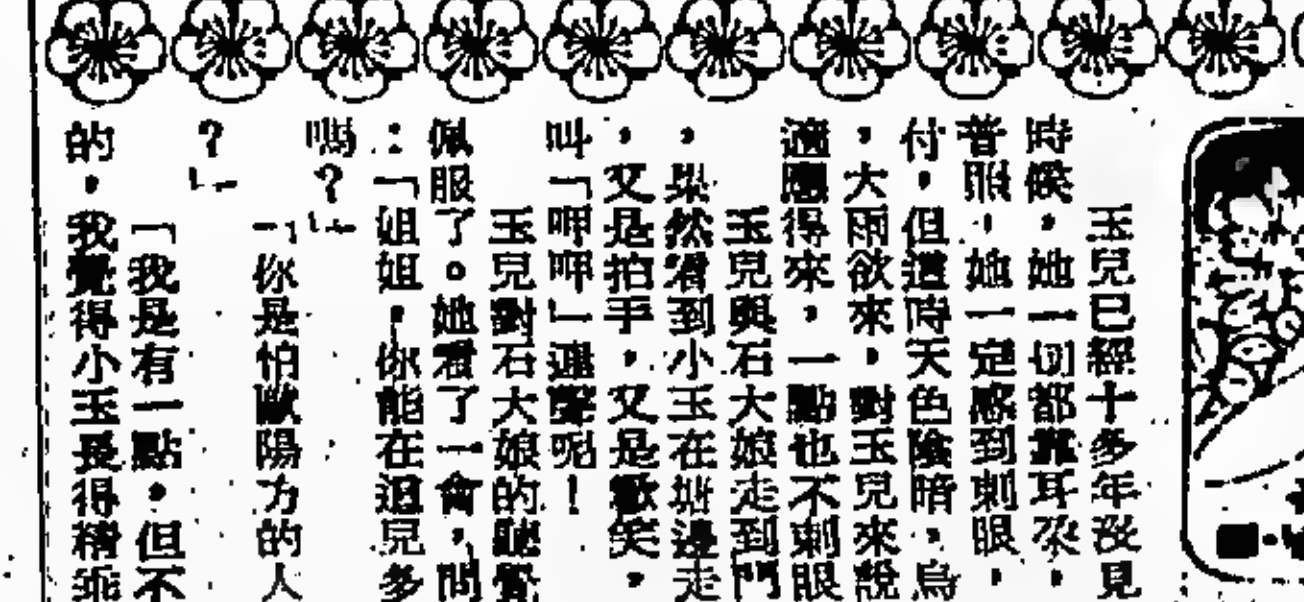 玉兒已經十多年沒見
時候,她一切都靠耳朶,
普照,她一定感到刺眼,
付,但這時天色陰暗,烏
,大雨欲來,對玉兒來說
適應得來,一點也不刺眼
玉兒與石大娘走到門
,果然看到小玉在塘邊走
,又是拍手,又是歡笑,
叫「呷呷呷」連聲呢!
玉兒對石大娘的聽覺
佩服了。她看了一會,問
:「姐姐,你能在這兒多
嗎?」
「你是怕歐陽方的人
?」
「我是有一點,但不
的,我覺得小玉長得精乖